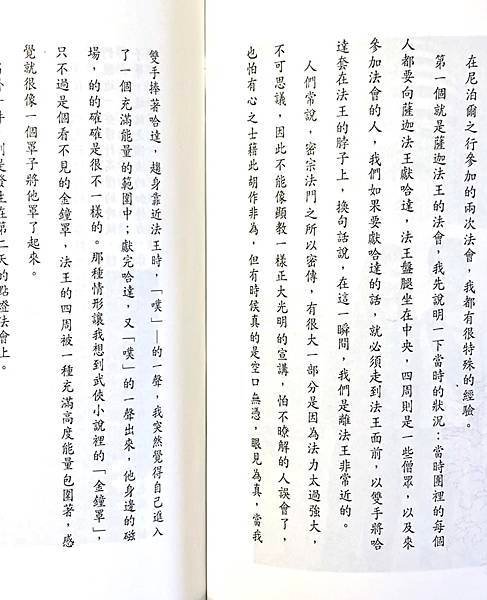 在尼泊爾之行參加的兩次法會，我都有很特殊的經驗。
第一個就是薩迦法王的法會，我先說明一下當時的狀況：當時團裡的每個
人都要向薩迦法王獻哈達，法王盤腿坐在中央，四周則是一些僧眾，以及來
參加法會的人，我們如果要獻哈達的話，就必須走到法王面前，以雙手將哈
達套在法王的脖子上，換句話說，在這一瞬間，我們是離法王非常近的。
人們常說，密宗法門之所以密傳，有很大一部分是因為法力太過強大，
不可思議，因此不能像顯教一樣正大光明的宣講，怕不瞭解的人誤會了，
也怕有心之士藉此胡作非為，但有時侯真的是空口無憑，眼見為真，當我
雙手捧著哈達，趨身靠近法王時，「噗」—的一聲，我突然覺得自己進入
了一個充滿能量的範圍中；獻完哈達，又「噗」的一聲出來，他身邊的磁
場，的的確確是很不一樣的。那種情形讓我想到武俠小說裡的「金鐘罩」，
只不過是個看不見的金鐘罩，法王的四周被一種充滿高度能量包圍著，感
覺就很像一個罩子將他罩了起來。
是發生在第二天的點證法會上。